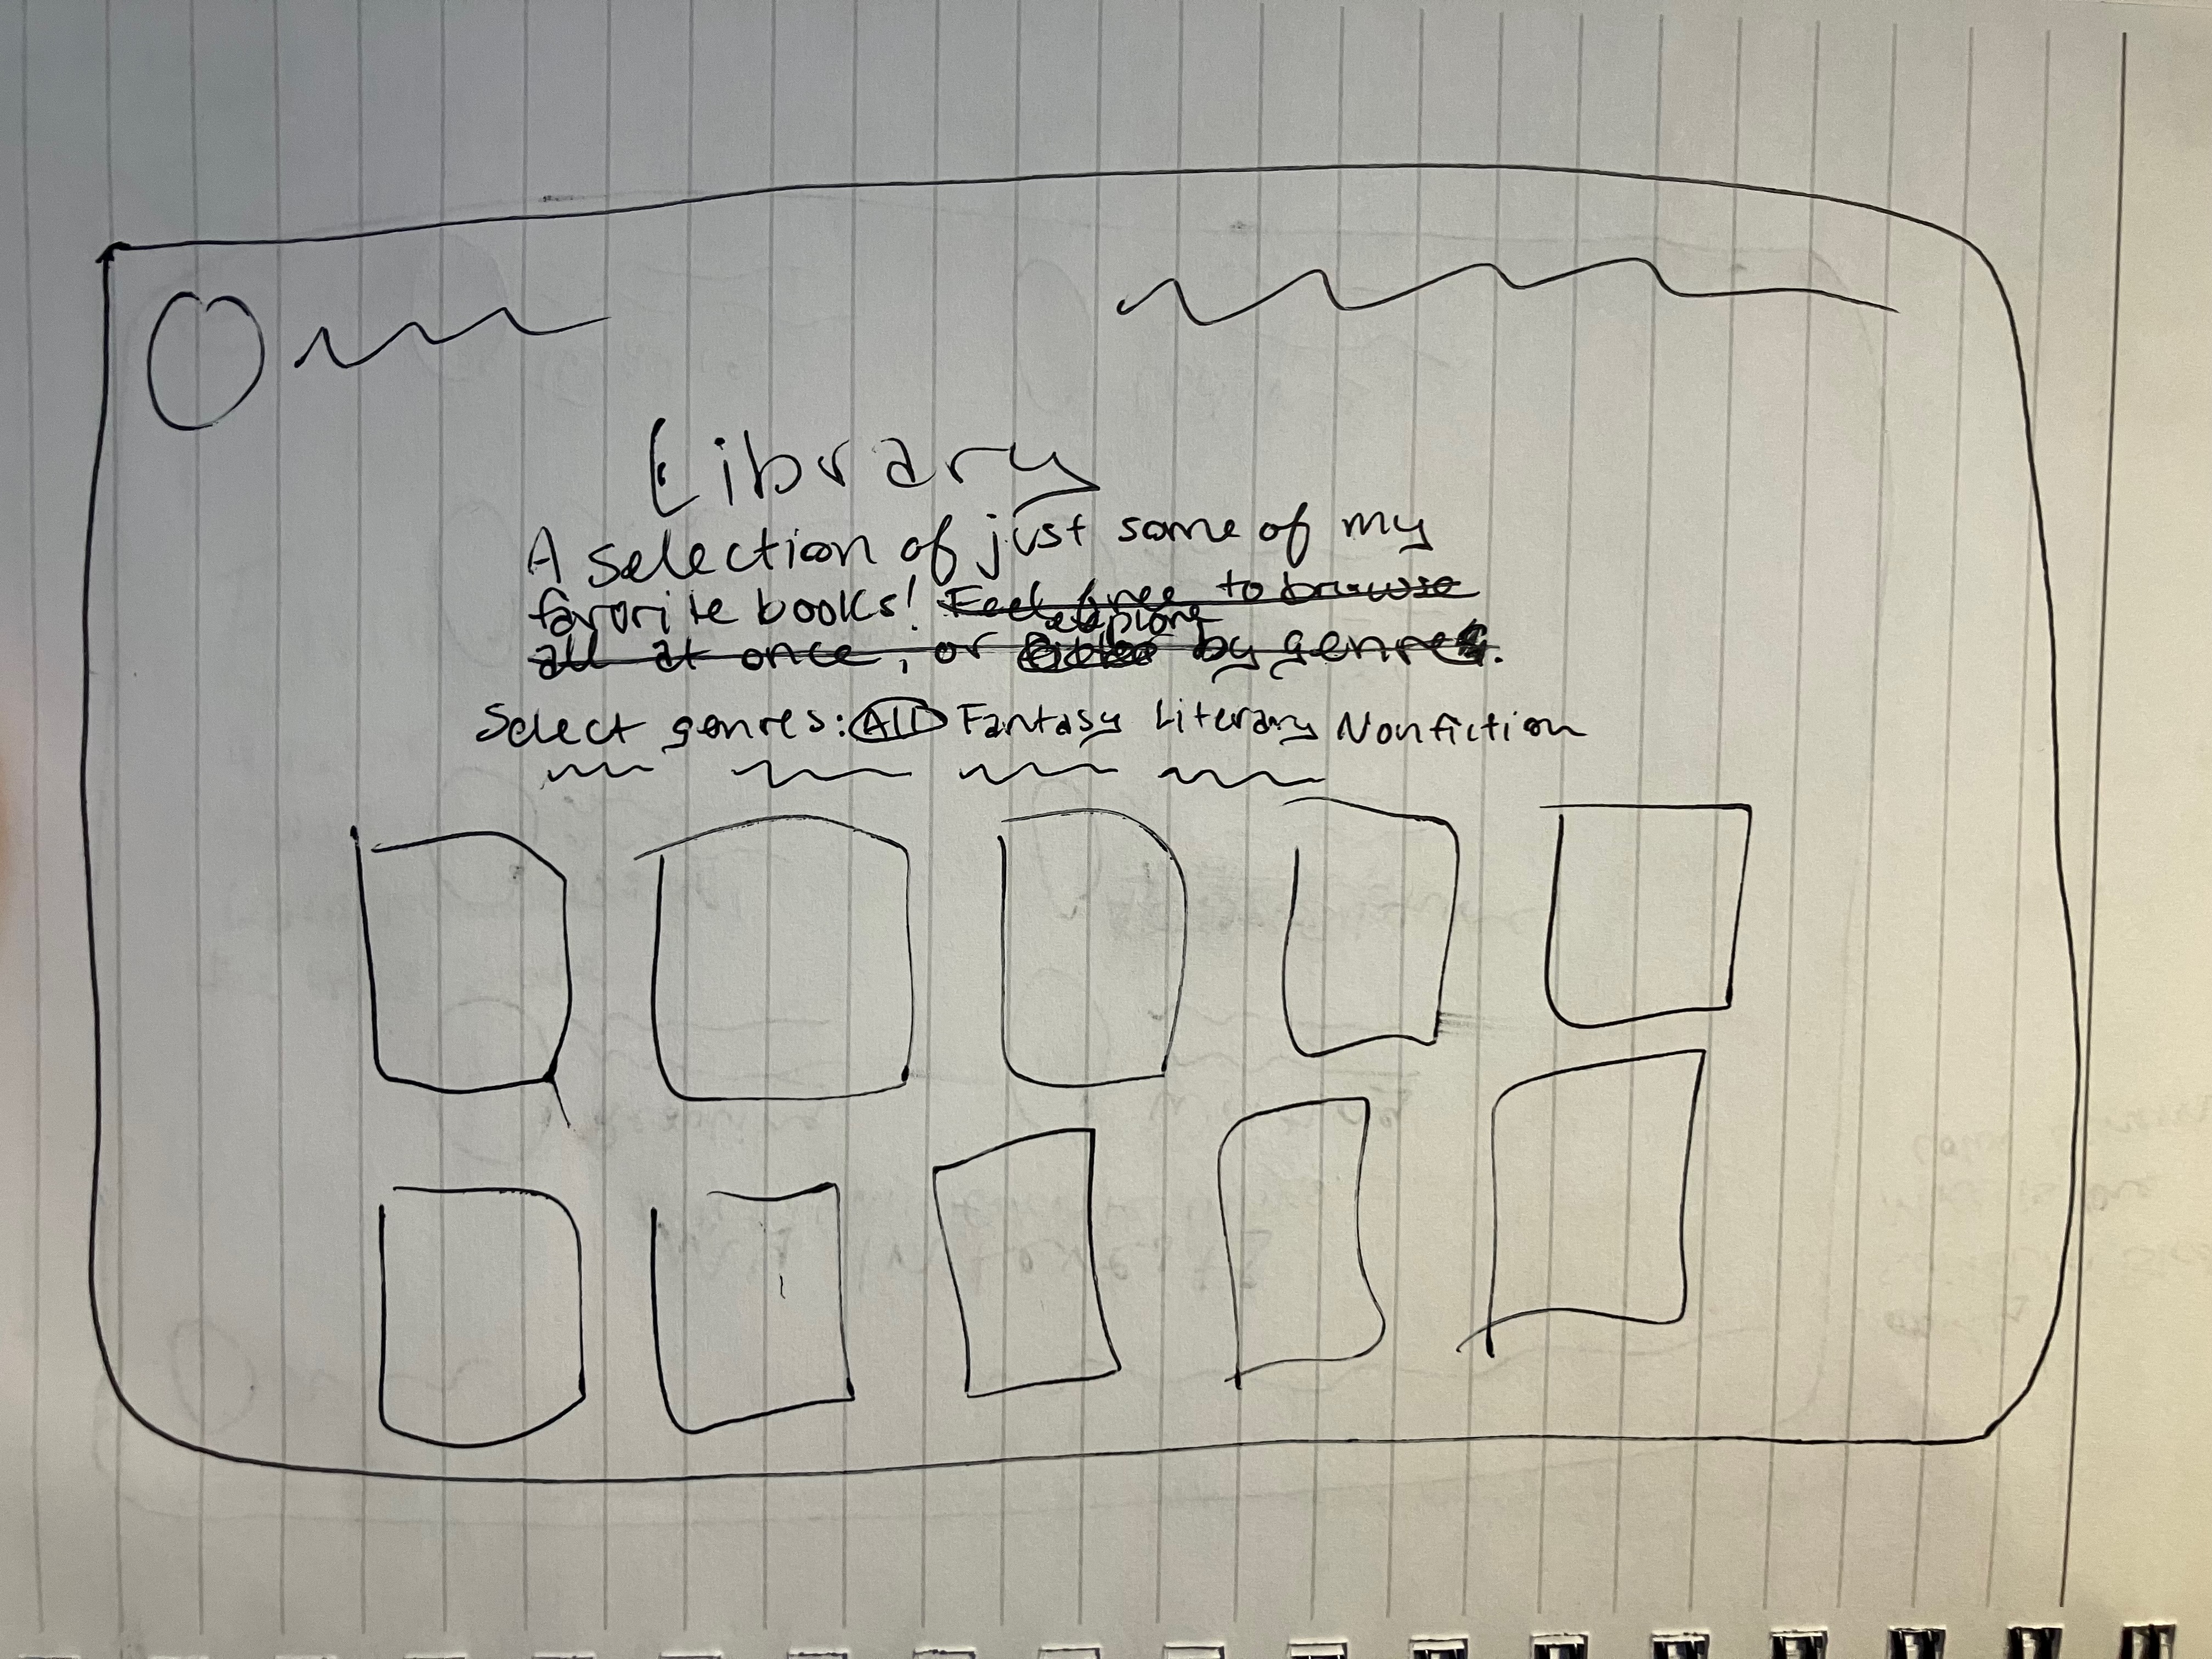 Library
A selection of just some of my
favorite books! Feel free to browse
explore
all at once, or by genre.
Select genres: All Fantasy Literary Nonfiction